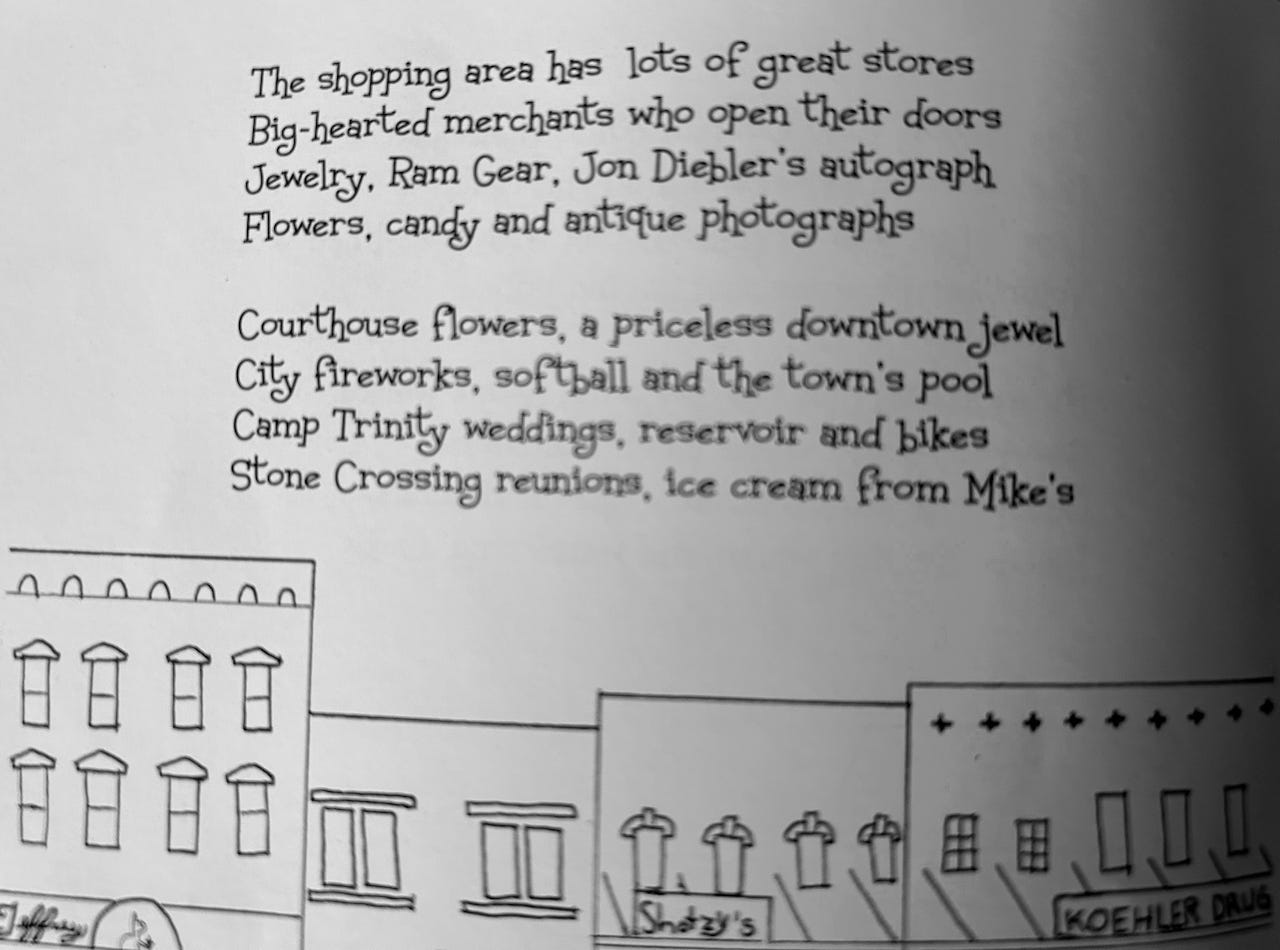 The shopping area has lots of great stores
Big-hearted merchants who open their doors
Jewelry, Ram Gear, Jon Diebler's autograph
Flowers, candy and antique photographs
Courthouse flowers, a priceless downtown jewel
City fireworks, softball and the town's pool
Camp Trinity weddings, reservoir and bikes
Stone Crossing reunions, ice cream from Mike's
Jeffrey
Shotzy's
KOEHLER DRUG